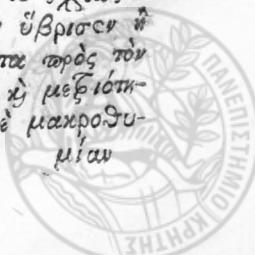 ὕβρισεν ἢ
τα πρὸς τὸν
καὶ μετριότη-
μακροθυ-
μίαν
ΠΑΝΕΠΙΣΤΗΜΙΟ ΚΡΗΤΗΣ